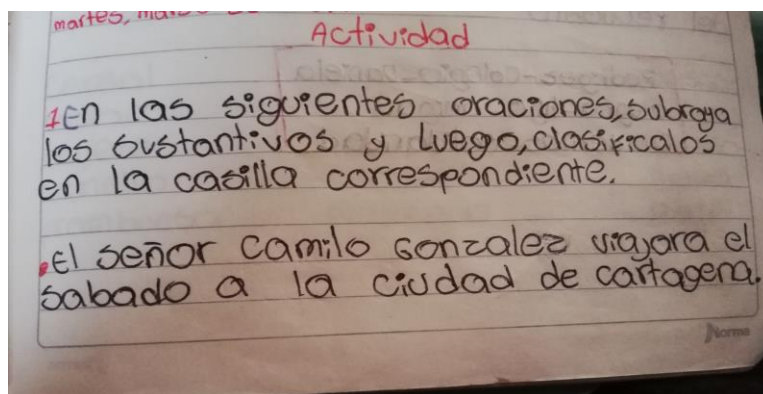 martes,
Actividad
1En las siguientes oraciones, subraya
los sustantivos y Luego, clasificalos
en la casilla correspondiente.
.El señor camilo Gonzalez viajara el
sabado a la ciudad de cartagena.
Norma